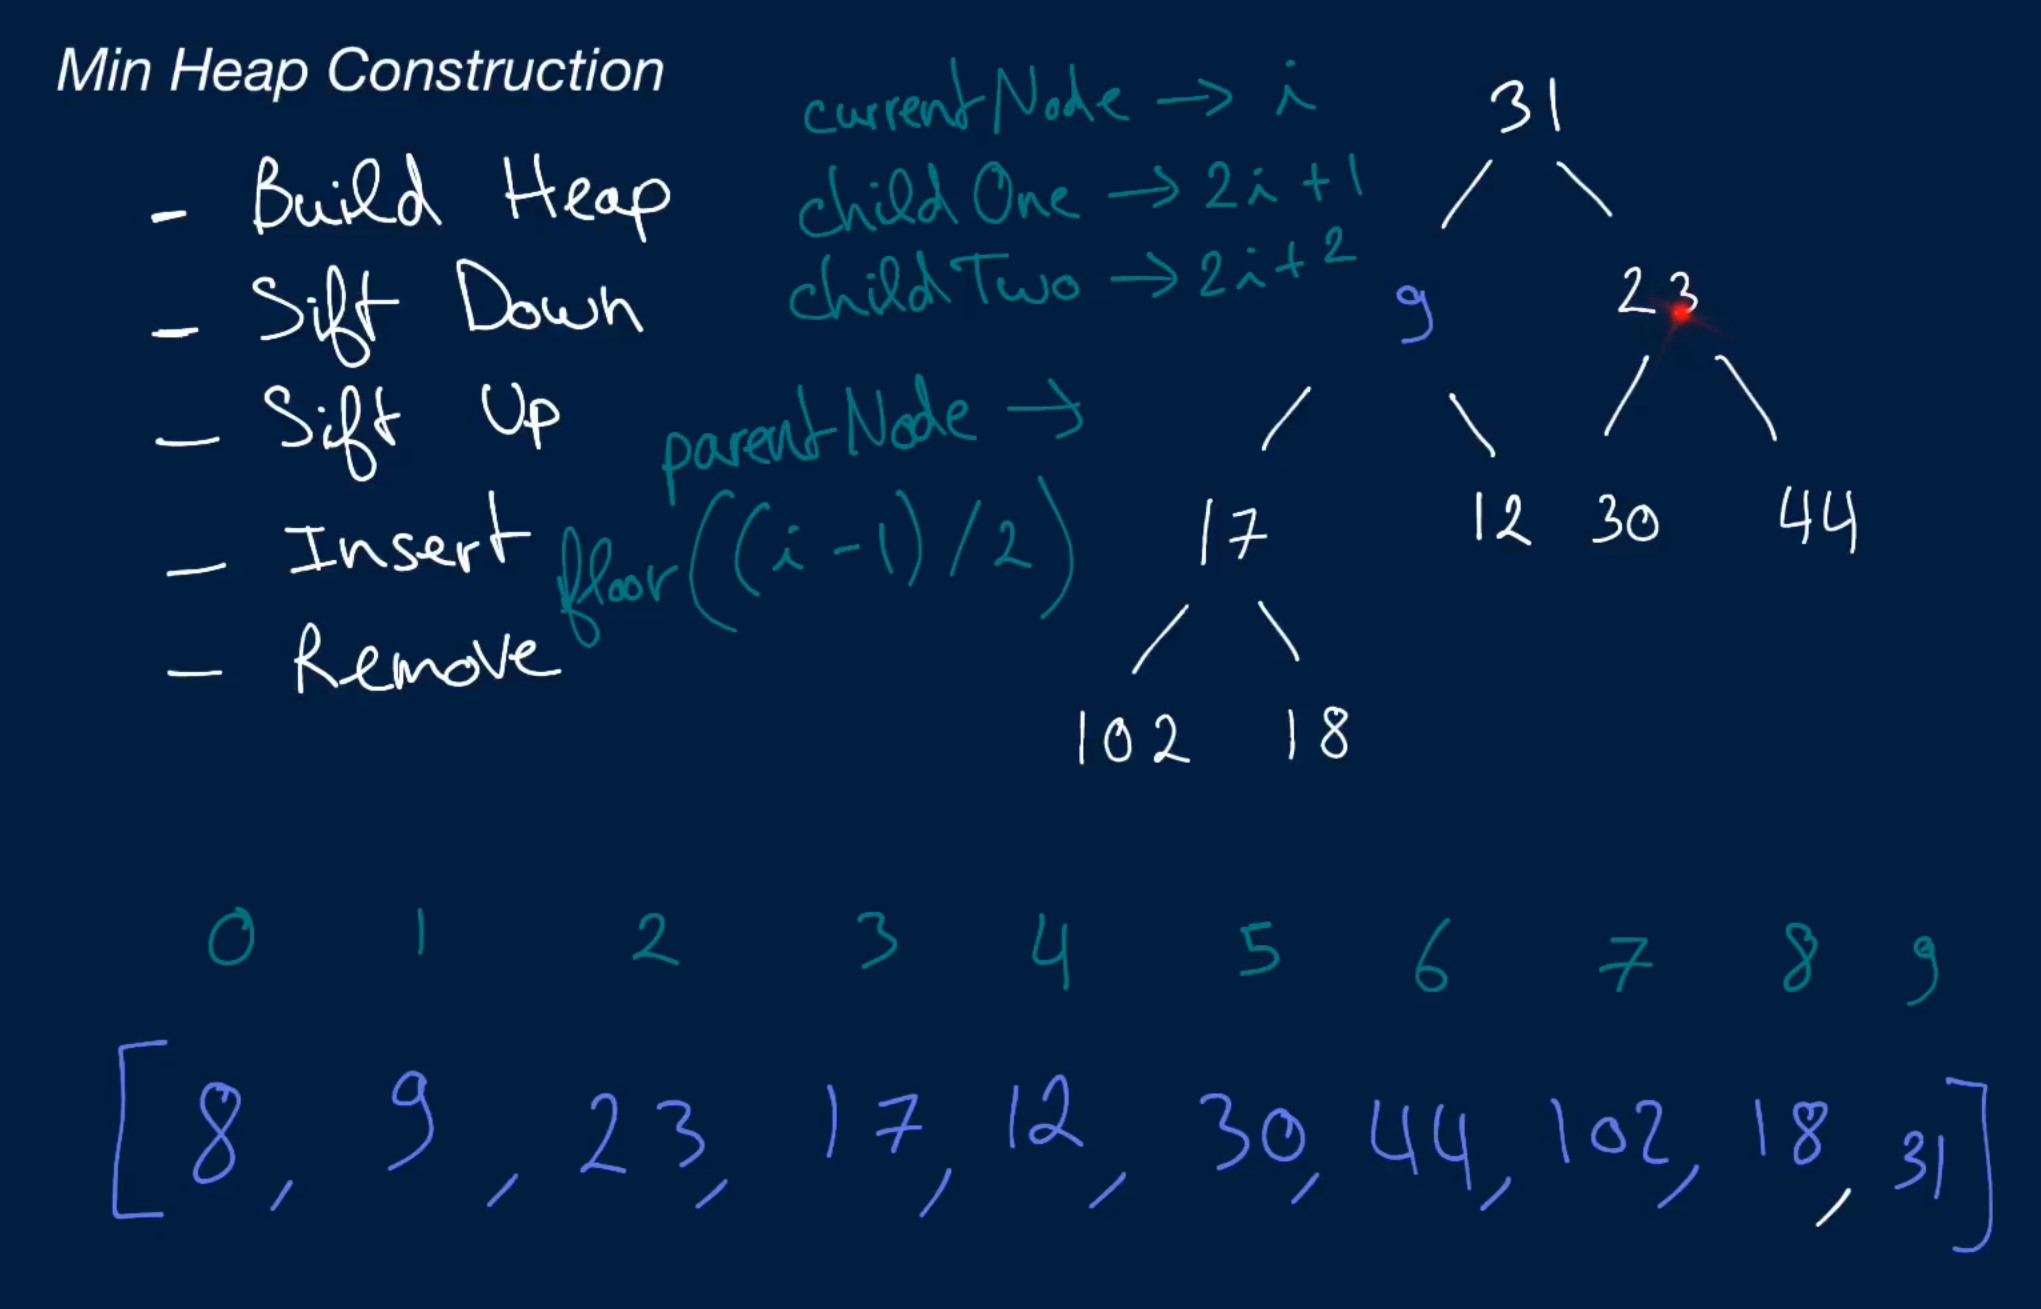 Min Heap Construction
- Build Heap
- Sift Down
- Sift Up
- Insert
- Remove
currentNode → i
childOne → 2i+1
childTwo → 2i+2
parentNode →
floor((i-1)/2)
31
9 23
17 12 30 44
102 18
0 1 2 3 4 5 6 7 8 9
[8, 9, 23, 17, 12, 30, 44, 102, 18, 31]